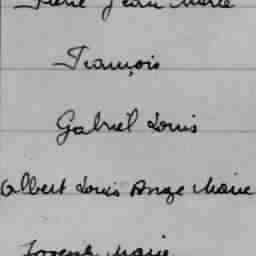 Pierre Jean Marie
François
Gabriel Louis
Albert Louis Ange Marie
Joseph Marie